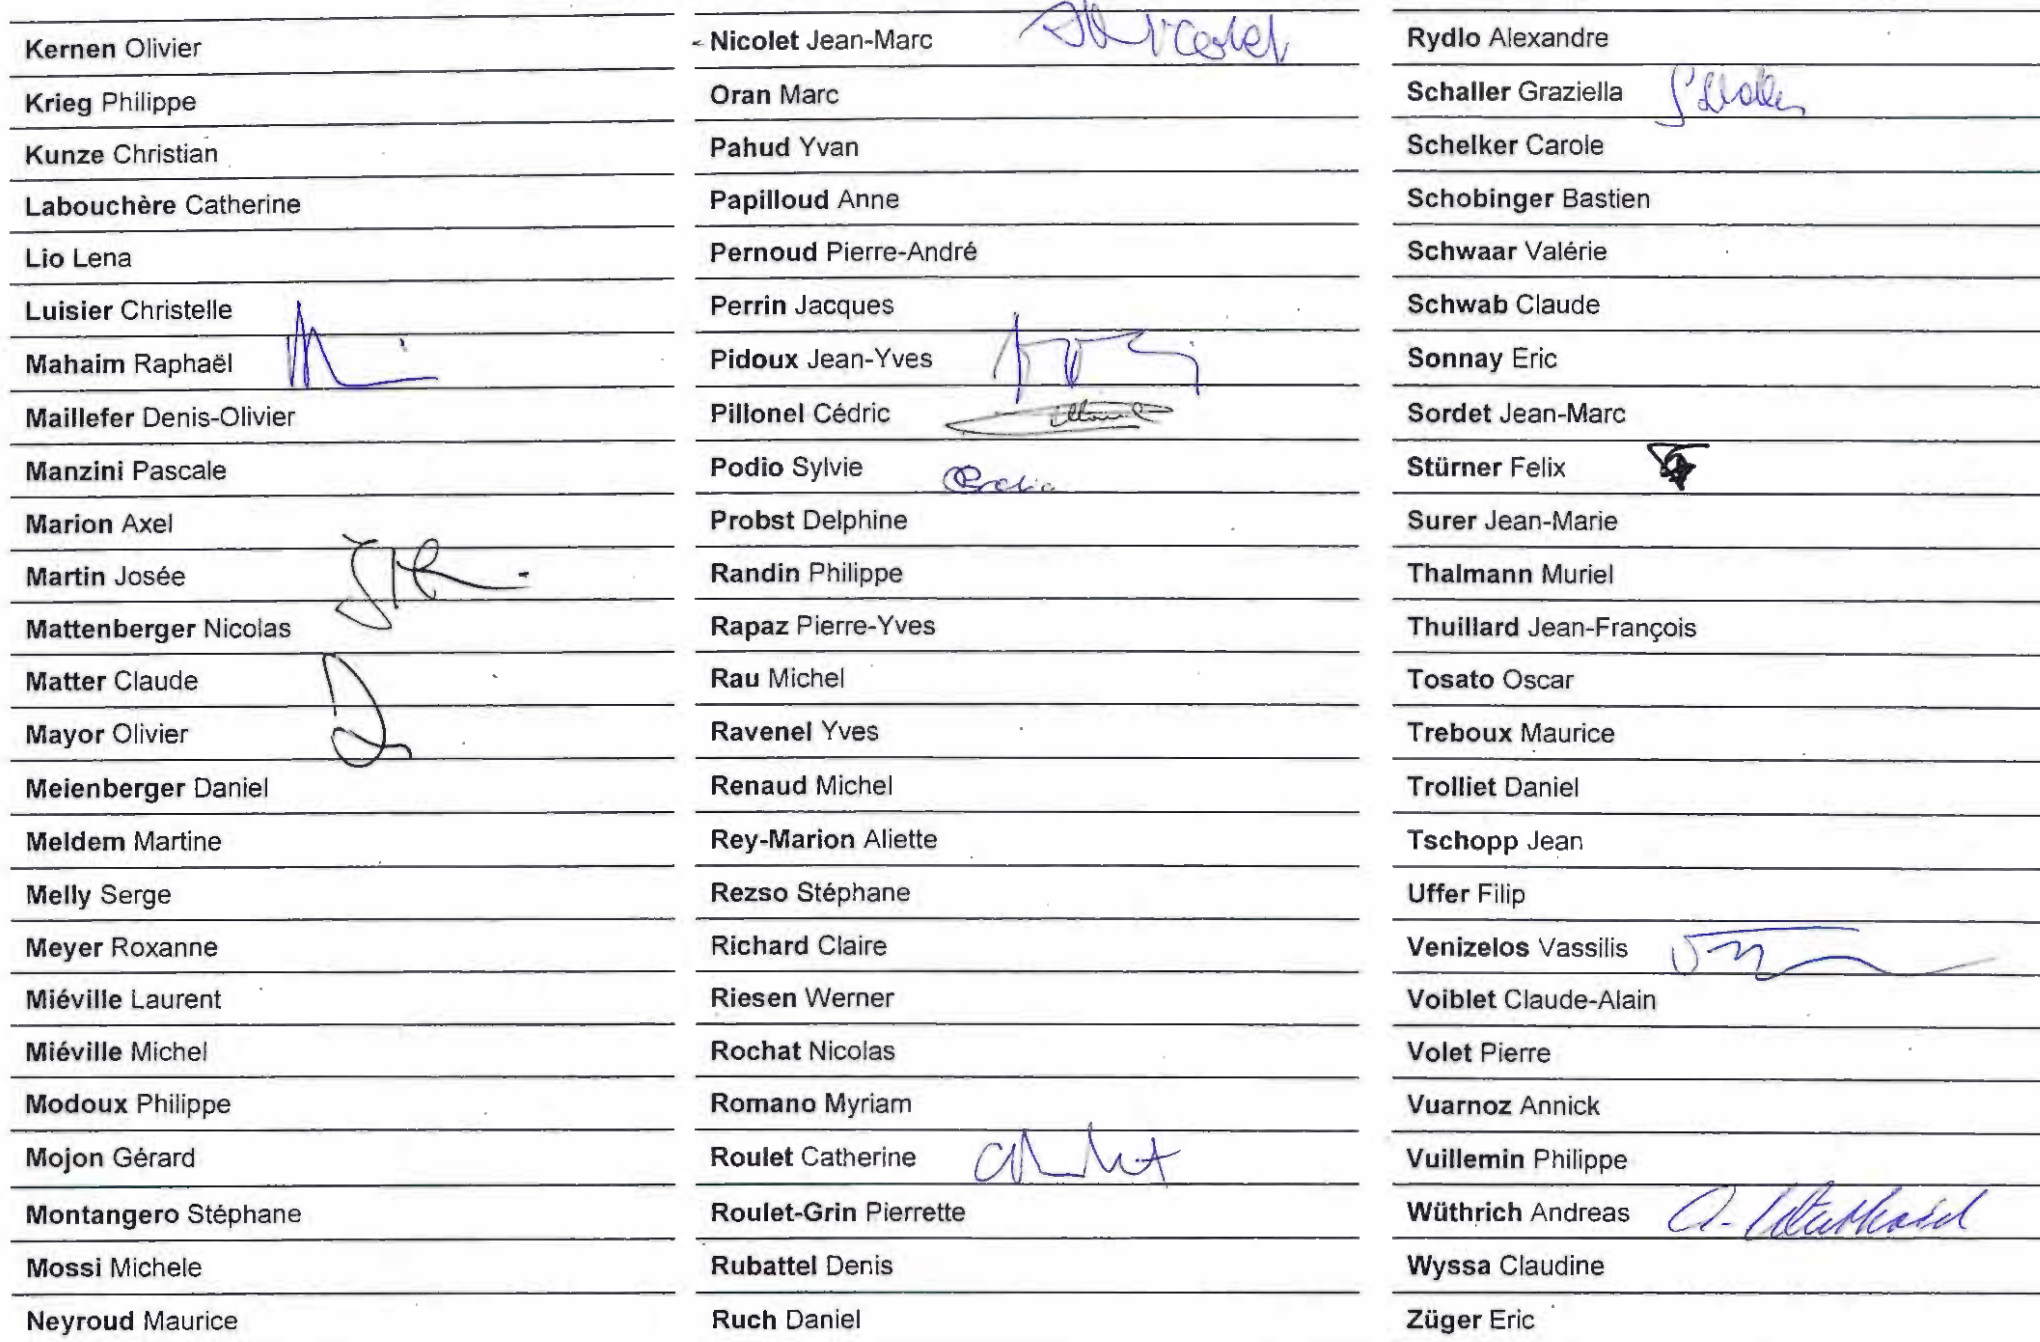 Kernen Olivier
Krieg Philippe
Kunze Christian
Labouchère Catherine
Lio Lena
Luisier Christelle
Mahaim Raphaël
Maillefer Denis-Olivier
Manzini Pascale
Marion Axel
Martin Josée
Mattenberger Nicolas
Matter Claude
Mayor Olivier
Meienberger Daniel
Meldem Martine
Melly Serge
Meyer Roxanne
Miéville Laurent
Miéville Michel
Modoux Philippe
Mojon Gérard
Montangero Stéphane
Mossi Michele
Neyroud Maurice
Nicolet Jean-Marc
Oran Marc
Pahud Yvan
Papilloud Anne
Pernoud Pierre-André
Perrin Jacques
Pidoux Jean-Yves
Pillonel Cédric
Podio Sylvie
Probst Delphine
Randin Philippe
Rapaz Pierre-Yves
Rau Michel
Ravenel Yves
Renaud Michel
Rey-Marion Aliette
Rezso Stéphane
Richard Claire
Riesen Werner
Rochat Nicolas
Romano Myriam
Roulet Catherine
Roulet-Grin Pierrette
Rubattel Denis
Ruch Daniel
Rydlo Alexandre
Schaller Graziella
Schelker Carole
Schobinger Bastien
Schwaar Valérie
Schwab Claude
Sonnay Eric
Sordet Jean-Marc
Stürner Felix
Surer Jean-Marie
Thalmann Muriel
Thuillard Jean-François
Tosato Oscar
Treboux Maurice
Trolliet Daniel
Tschopp Jean
Uffer Filip
Venizelos Vassilis
Voiblet Claude-Alain
Volet Pierre
Vuarnoz Annick
Vuillemin Philippe
Wüthrich Andreas
Wyssa Claudine
Züger Eric